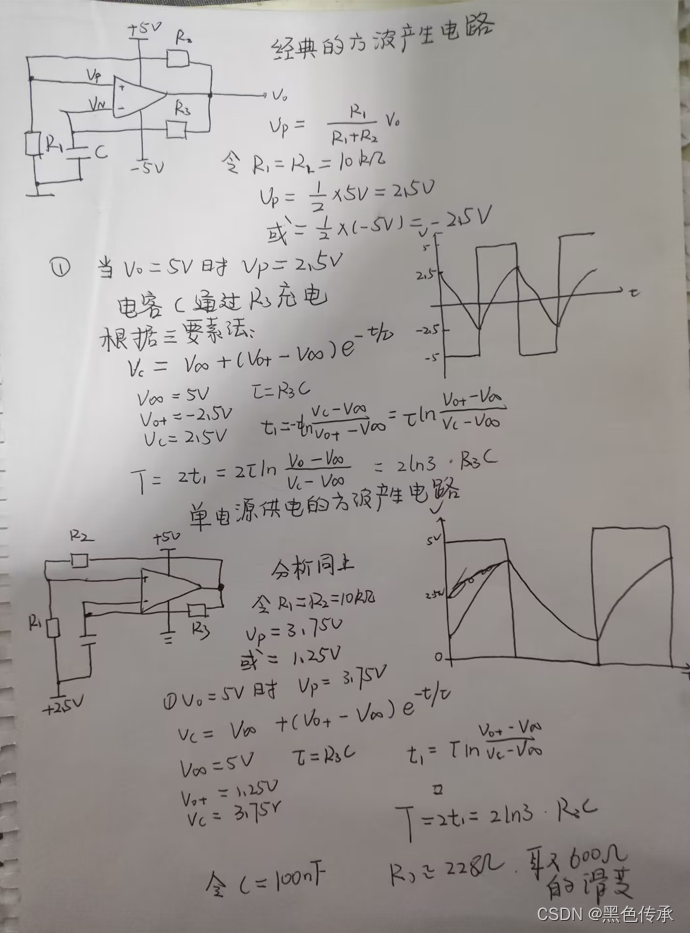 经典的方波产生电路
+5V
R2
VP
VN
+
-
V0
R3
R1
C
-5V
VP = R1/(R1+R2) V0
令 R1=R2=10kΩ
VP = 1/2 ×5V = 2.5V
或 = 1/2 ×(-5V) = -2.5V
① 当 V0=5V 时 VP=2.5V
电容 C 通过 R3 充电
根据三要素法:
Vc = V∞ + (V0+ - V∞) e^-t/τ
V∞ = 5V τ=R3C
V0+ = -2.5V
Vc = 2.5V
t1 = -τln (Vc-V∞)/(V0+-V∞) = τln (V0+-V∞)/(Vc-V∞)
T = 2t1 = 2τln (V0-V∞)/(Vc-V∞) = 2ln3 · R3C
V
5
2.5
-2.5
-5
t
单电源供电的方波产生电路
R2
+5V
+
-
R1
R3
+2.5V
分析同上
令 R1=R2=10kΩ
VP = 3.75V
或 = 1.25V
① V0=5V 时 VP=3.75V
Vc = V∞ + (V0+ - V∞) e^-t/τ
V∞ = 5V τ=R3C
V0+ = 1.25V
Vc = 3.75V
t1 = τln (V0+-V∞)/(Vc-V∞)
T = 2t1 = 2ln3 · R3C
V
5V
2.5V
0
令 C=100nF R3≈228Ω. 取 600Ω
的滑变
CSDN @黑色传承